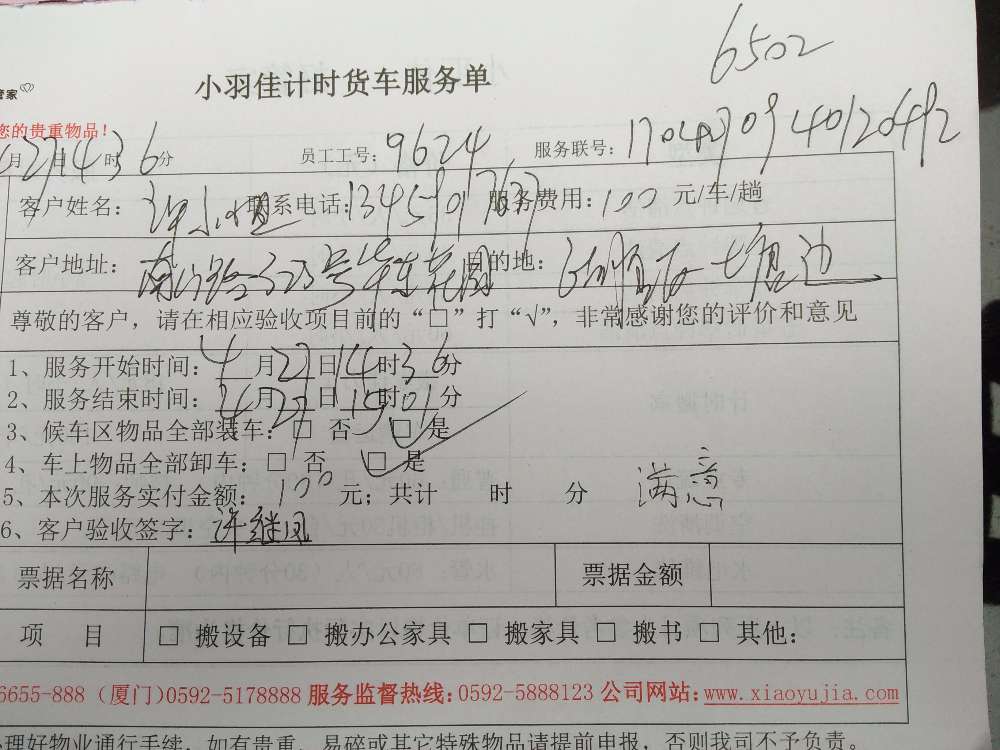 6502
管家
小羽佳计时货车服务单
您的贵重物品!
月27日14时36分 员工工号:9624 服务联号:
客户姓名: 联系电话: 服务费用:100元/车/趟
客户地址: 南山路323号华东花园 目的地:
尊敬的客户,请在相应验收项目前的“□”打“√”,非常感谢您的评价和意见
1、服务开始时间:4月27日14时36分
2、服务结束时间:4月27日15时01分
3、候车区物品全部装车:□ 否 □ 是
4、车上物品全部卸车:□ 否 □ 是
5、本次服务实付金额:100元;共计 时 分 满意
6、客户验收签字:许继凤
票据名称 票据金额
项 目 □ 搬设备 □ 搬办公家具 □ 搬家具 □ 搬书 □ 其他:
6655-888(厦门)0592-5178888 服务监督热线:0592-5888123 公司网站:www.xiaoyujia.com
办理好物业通行手续,如有贵重、易碎或其它特殊物品请提前申报,否则我司不予负责。